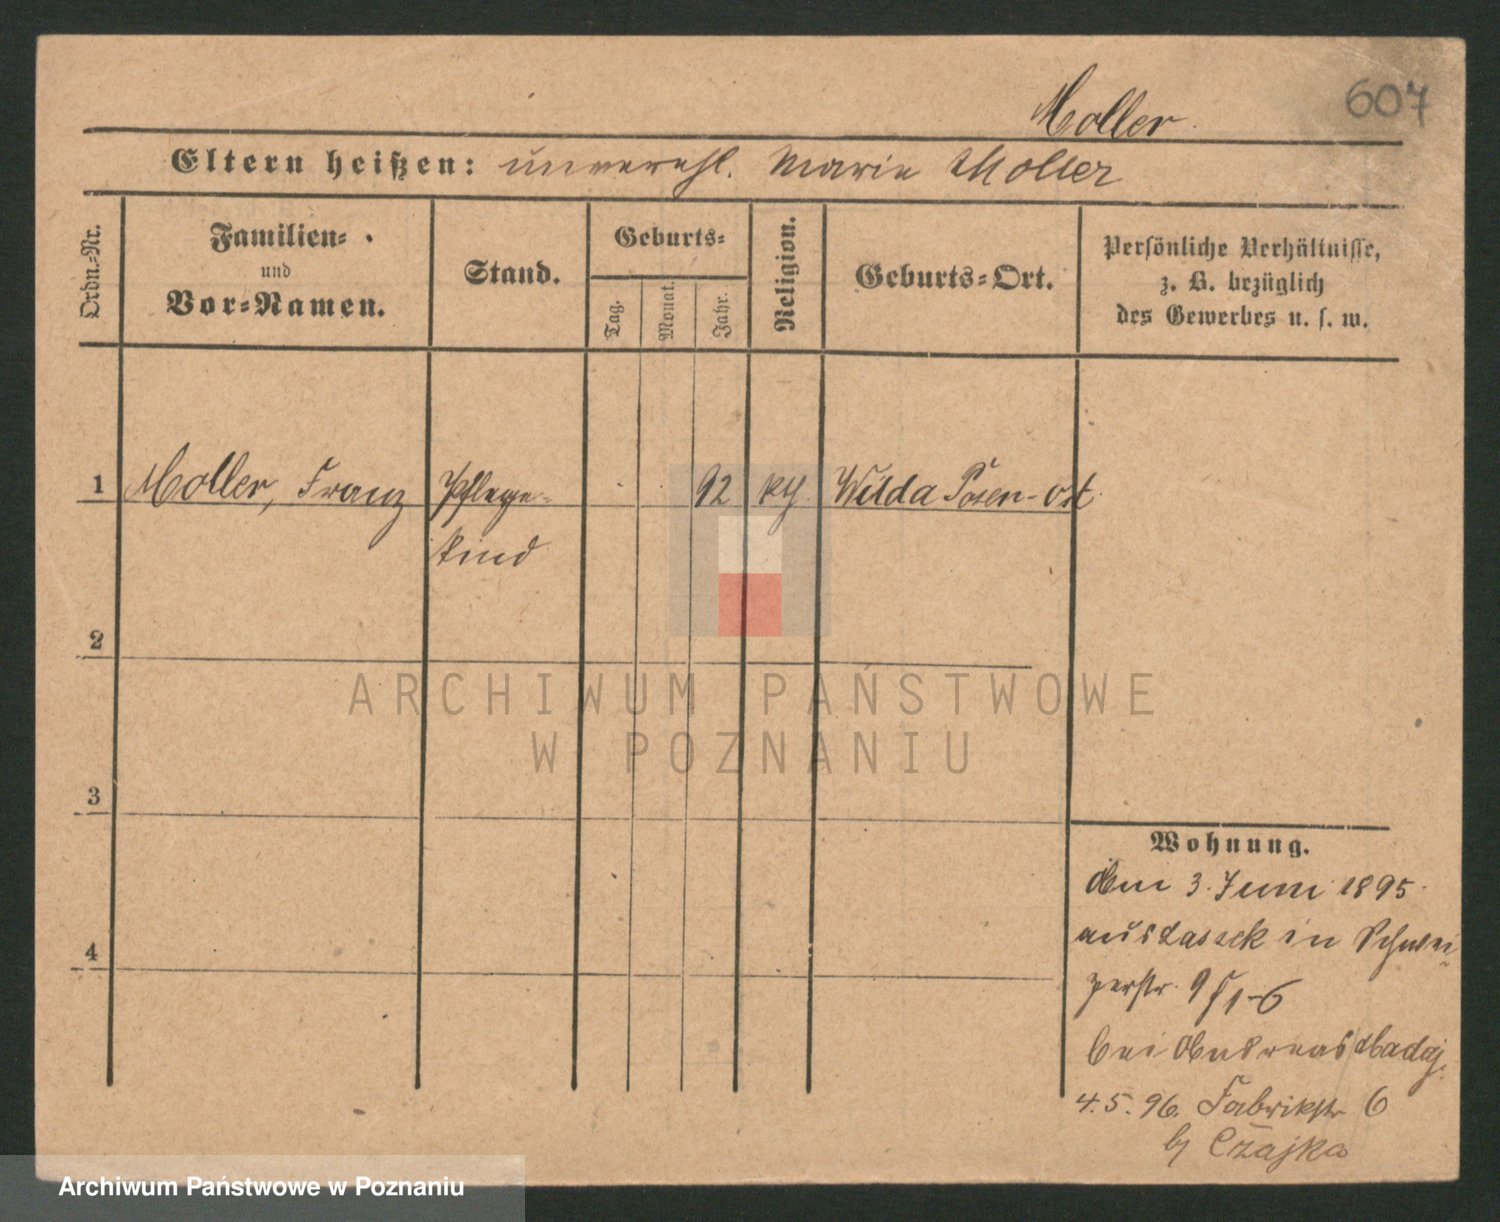 607
Moller
Eltern heißen: unverehl. Marie Moller
Ordn.-Nr.
Familien-
und
Vor-Namen.
Stand.
Geburts-
Tag.
Monat.
Jahr.
Religion.
Geburts-Ort.
Persönliche Verhältnisse,
z. B. bezüglich
des Gewerbes u. s. w.
1 Moller, Franz Pflege- 92 kth. Wilda Posen-Ost
kind
2
3
4
Wohnung.
3. Juni 1895
aus Lassek in Schwei-
zerstr. 9
bei Andreas
4.5.96. Fabrikstr 6
by Czajka
ARCHIWUM PAŃSTWOWE
W POZNANIU
Archiwum Państwowe w Poznaniu